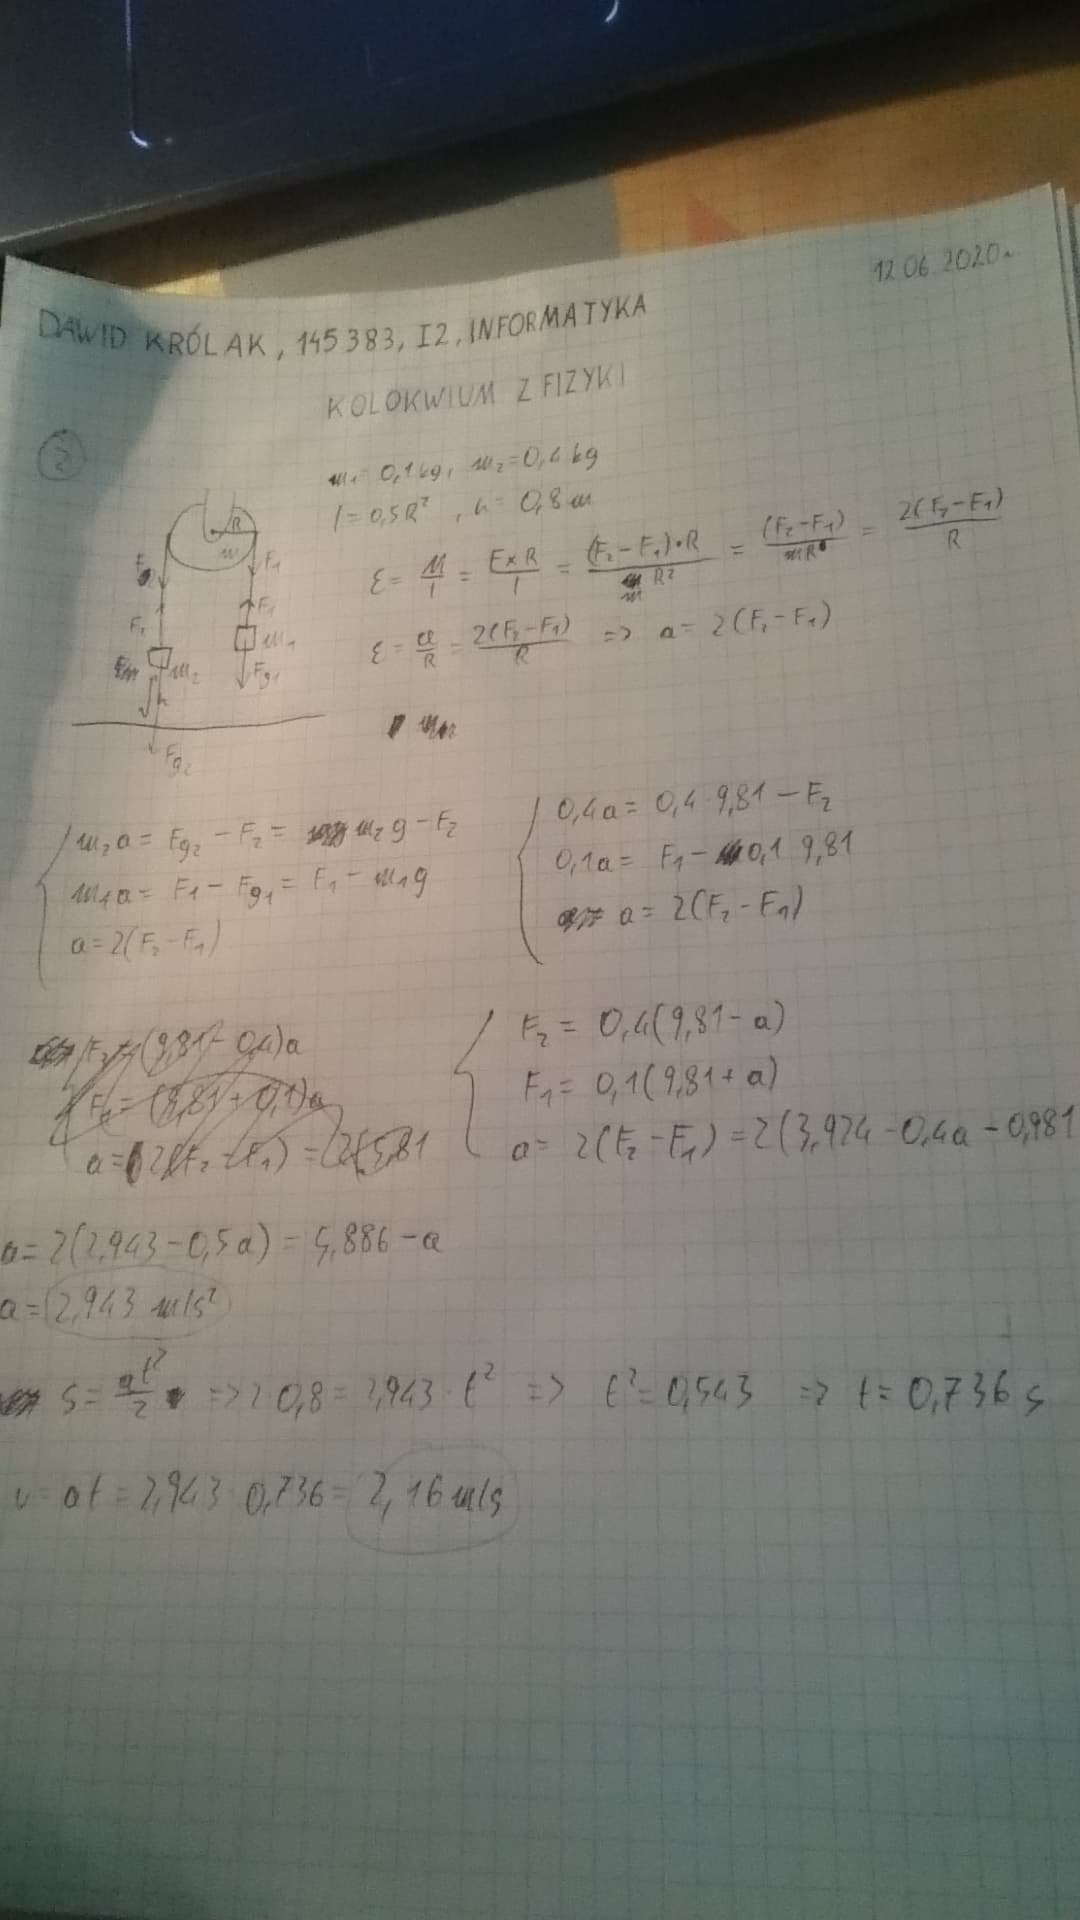 12.06.2020r
DAWID KRÓLAK, 145383, I2, INFORMATYKA
KOLOKWIUM Z FIZYKI
2
m₁ = 0,1 kg, m₂ = 0,4 kg
I = 0,5R², h = 0,8 m
R
m
F₁
F₁
F₂
m₁
m₂
Fg₁
h
Fg₂
ε = M/I = F×R/I = (F₂-F₁)·R/mR² = (F₂-F₁)/mR = 2(F₂-F₁)/R
ε = a/R = 2(F₂-F₁)/R => a = 2(F₂-F₁)
m₂a = Fg₂ - F₂ = m₂g - F₂
m₁a = F₁ - Fg₁ = F₁ - m₁g
a = 2(F₂-F₁)
0,4a = 0,4·9,81 - F₂
0,1a = F₁ - 0,1 9,81
a = 2(F₂-F₁)
F₂ = (9,81 - 0,4)a
F₁ = (9,81 + 0,1)a
F₂ = 0,4(9,81 - a)
F₁ = 0,1(9,81 + a)
a = 2(F₂-F₁) = 2(3,924 - 0,4a - 0,981
a = 2(2,943 - 0,5a) = 5,886 - a
a = 2,943 m/s²
s = at²/2 => 2 0,8 = 2,943 · t² => t² = 0,543 => t = 0,736 s
v = at = 2,943 0,736 = 2,16 m/s